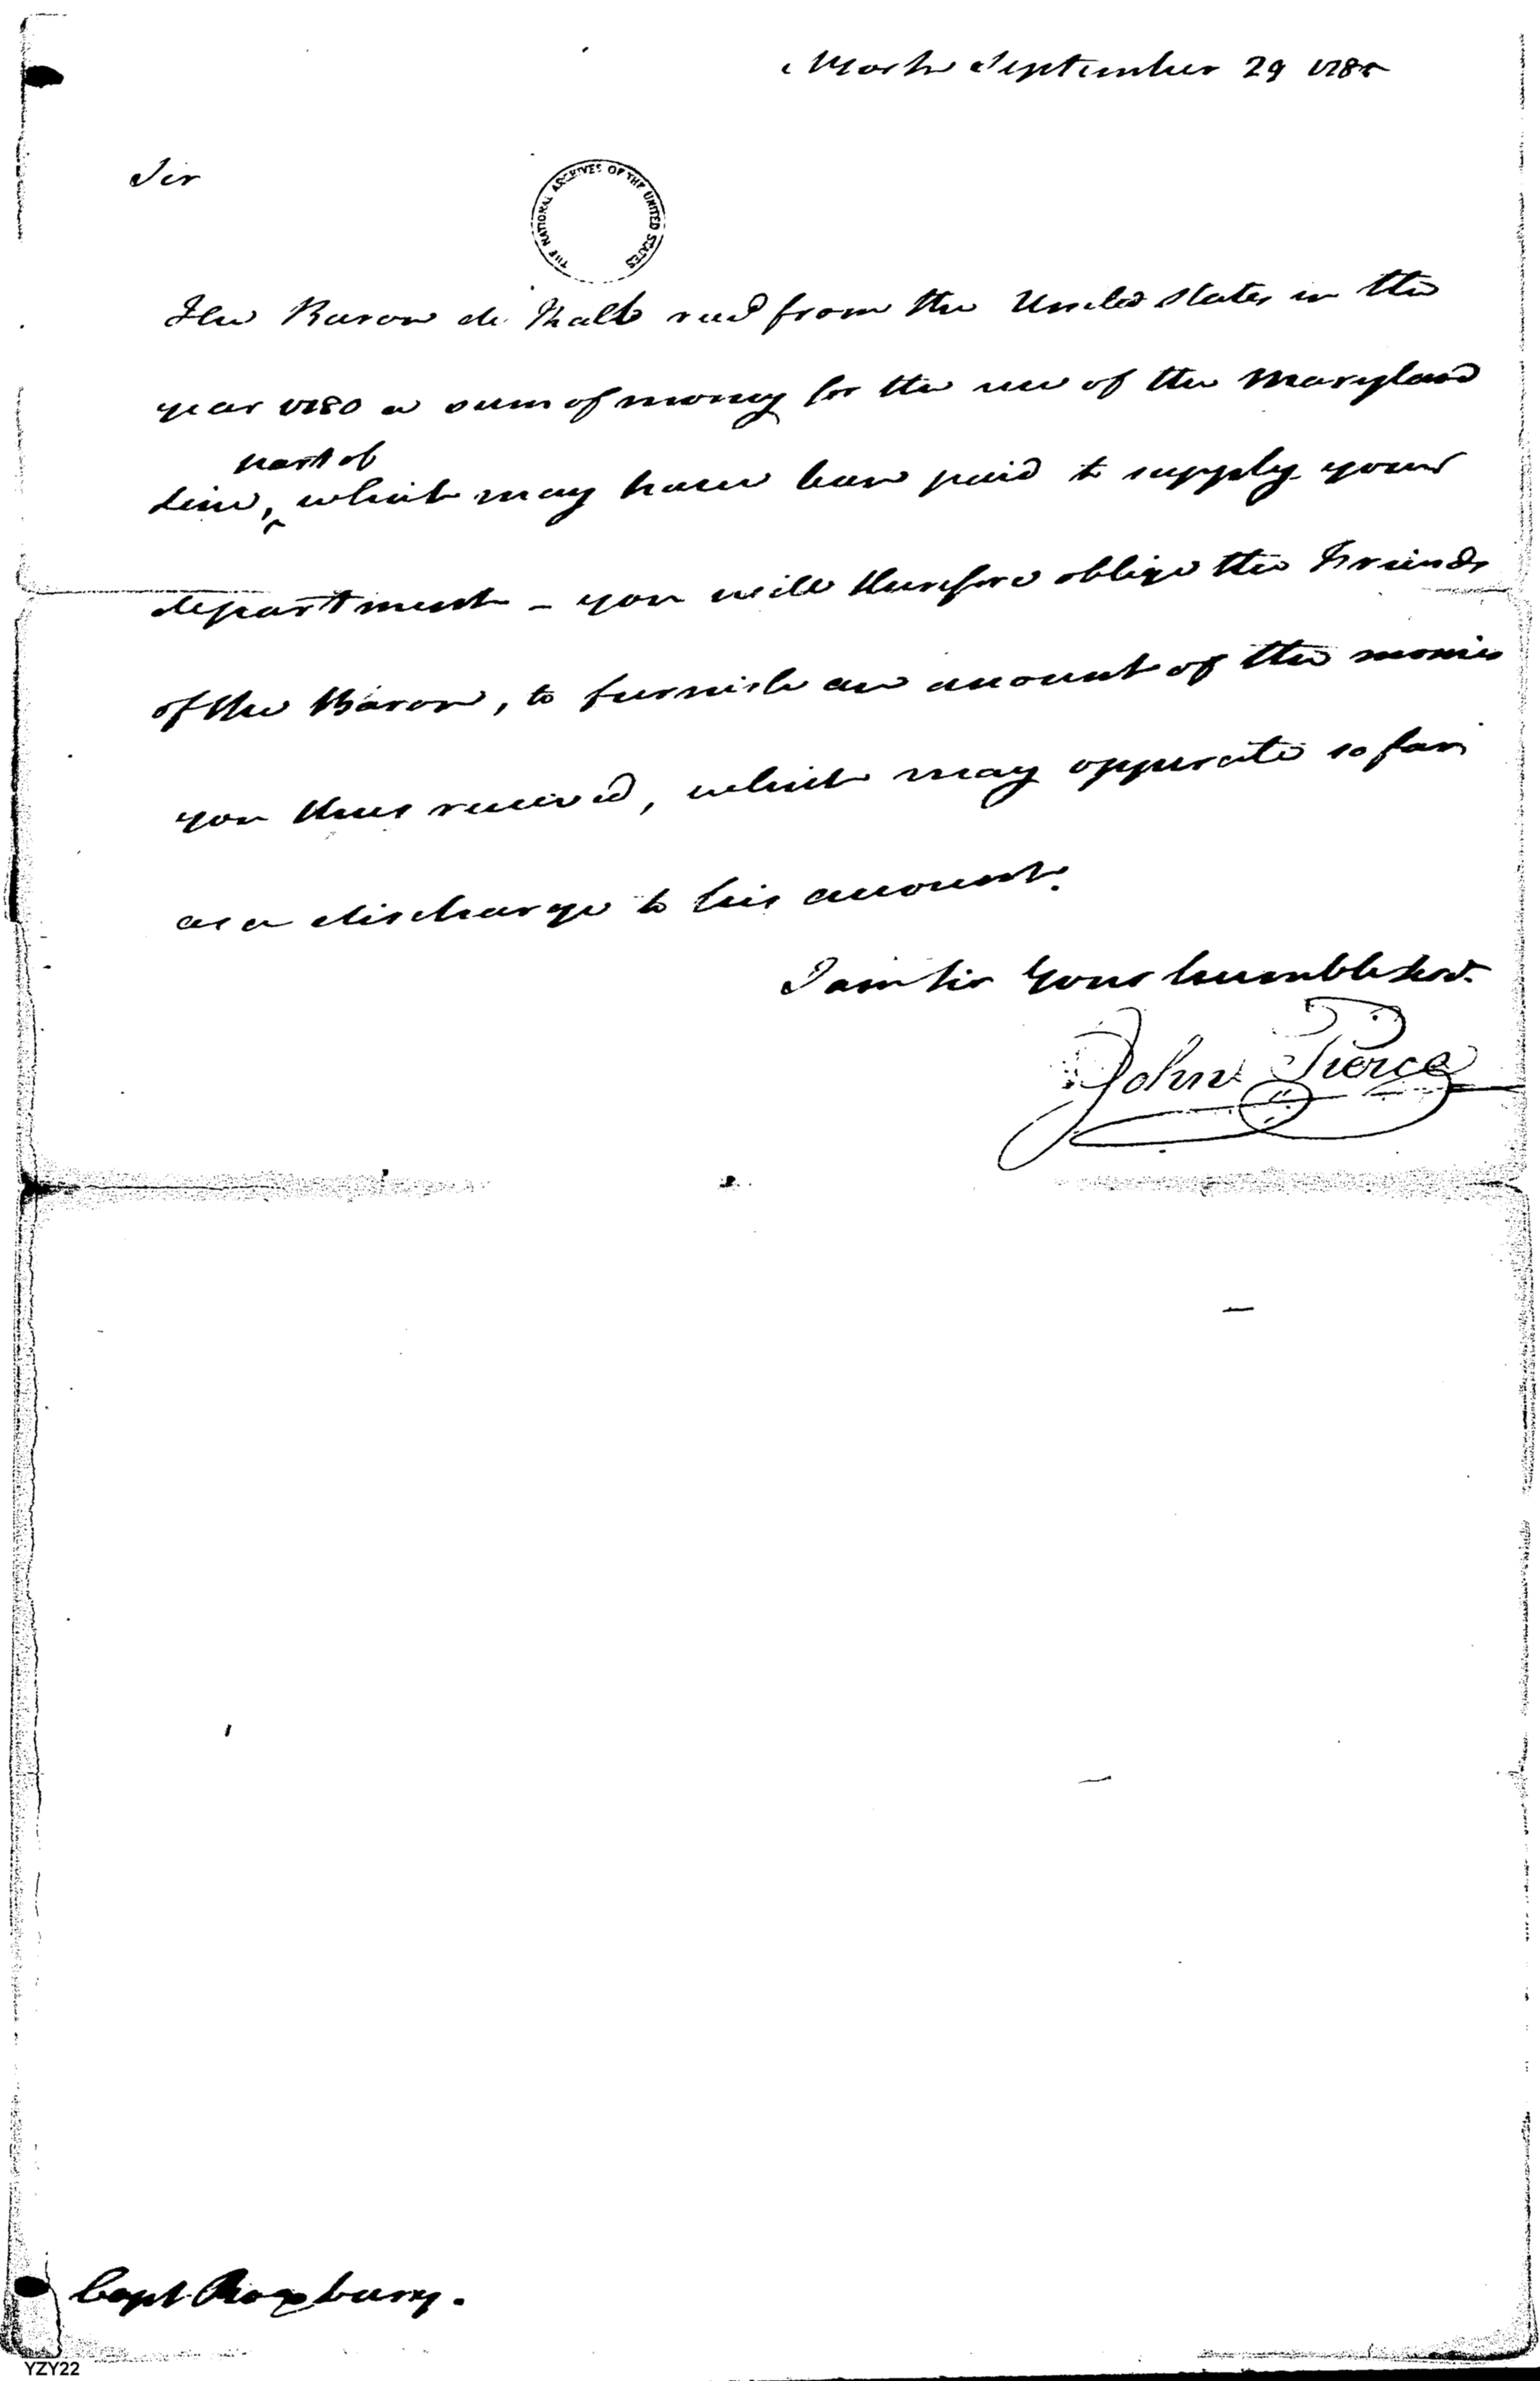 York September 29 1785
Sir
THE NATIONAL ARCHIVES OF THE UNITED STATES
The Baron de Kalb recd from the United States in the
year 1780 a sum of money for the use of the Maryland
part of
Line, ^ which may have been paid to supply your
department - you will therefore oblige the Friends
of the Baron, to furnish an account of the monies
you thus received, which may opperate so far
as a discharge to his account.
I am Sir Your humble Servt.
John Pierce
Capt. Roxbury.
YZY22